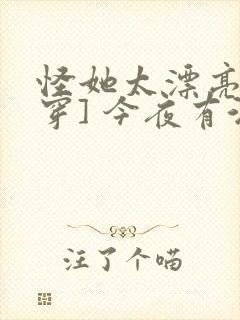 怪她太漂亮
穿] 今夜有
注了个喵